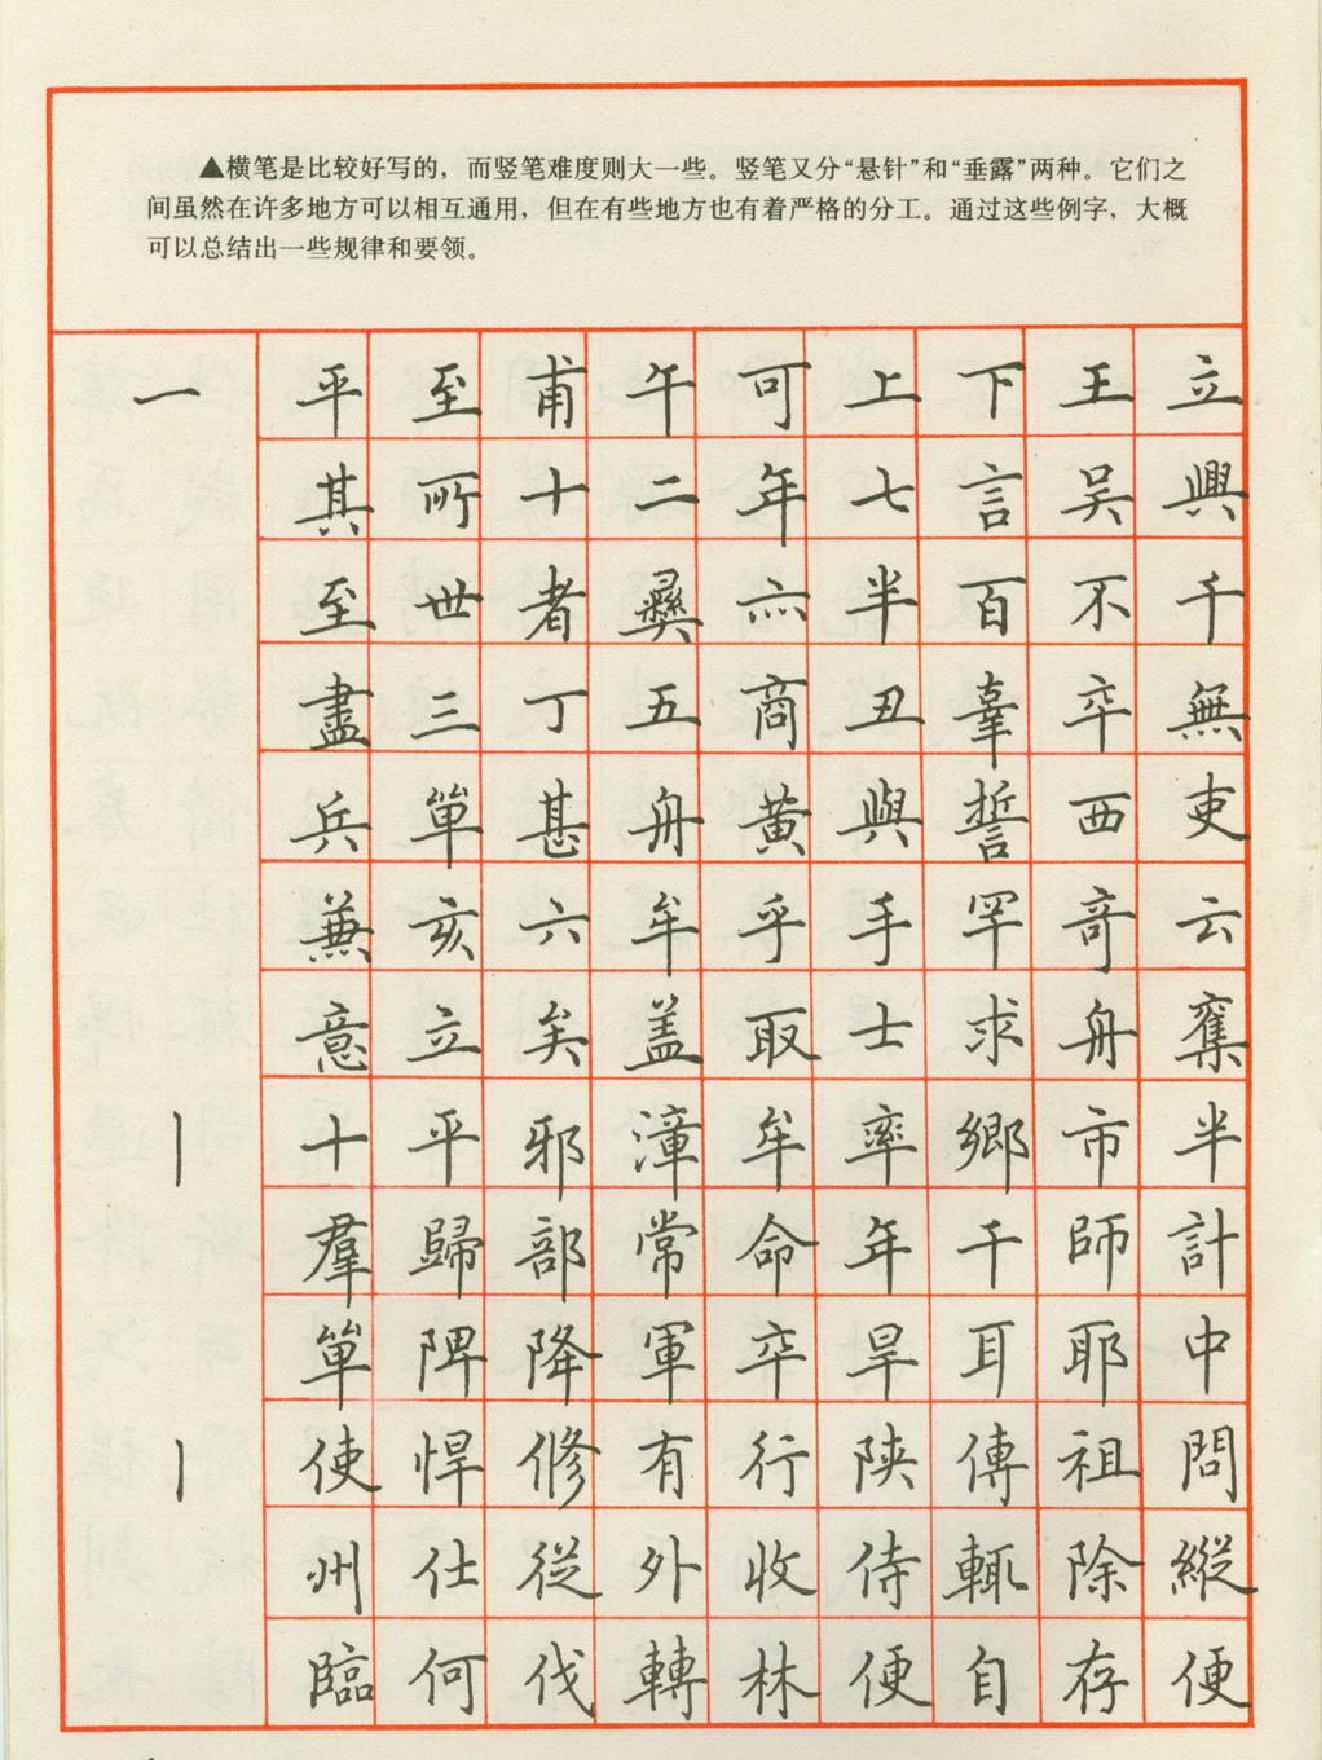 ▲横笔是比较好写的，而竖笔难度则大一些。竖笔又分“悬针”和“垂露”两种。它们之
间虽然在许多地方可以相互通用，但在有些地方也有着严格的分工。通过这些例字，大概
可以总结出一些规律和要领。
一 平 至 甫 午 可 上 下 王 立
其 所 十 二 年 七 言 吴 興
至 世 者 彝 六 半 百 不 千
盡 三 丁 五 商 丑 辜 卒 無
兵 單 甚 舟 黄 與 誓 西 吏
兼 亥 六 牟 乎 手 罕 奇 云
意 立 矣 盖 取 士 求 舟 奪
丨 十 平 邪 漳 牟 率 鄉 市 半
羣 歸 部 常 命 年 干 師 計
單 陴 降 軍 卒 旱 耳 耶 中
丨 使 悍 修 有 行 陕 傅 祖 問
州 仕 從 外 收 侍 輒 除 縱
臨 何 伐 轉 林 便 自 存 便